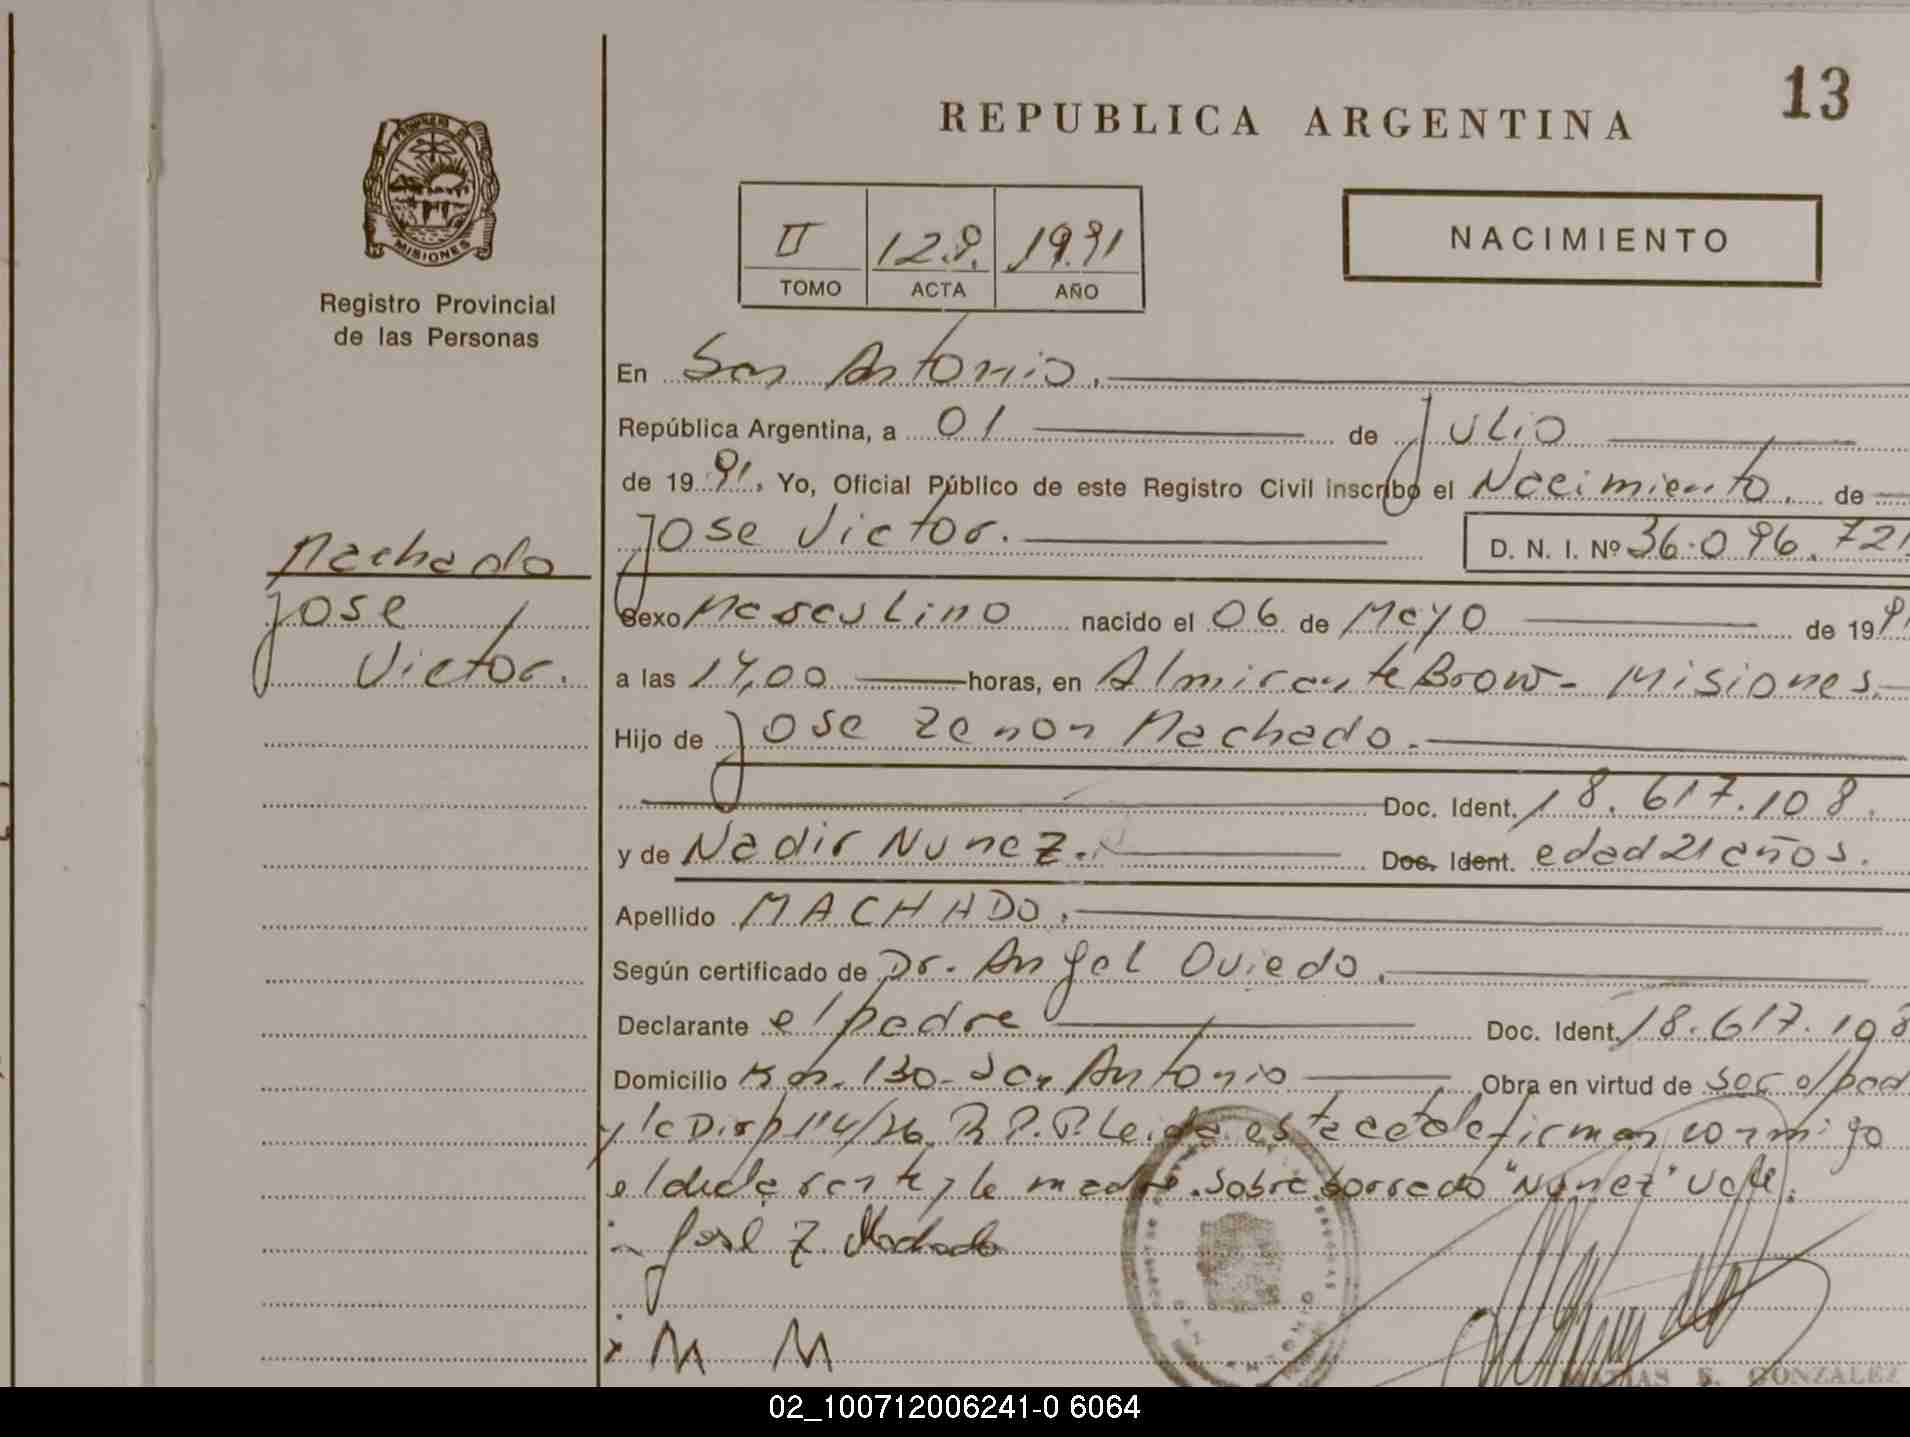 13
REPUBLICA ARGENTINA
PROVINCIA DE
MISIONES
Registro Provincial
de las Personas
II 129. 1991
TOMO ACTA AÑO
NACIMIENTO
En San Antonio.
República Argentina, a 01 de Julio
de 19 91. Yo, Oficial Público de este Registro Civil inscribo el Nacimiento. de
Jose Victor. D. N. I. Nº 36.096.721
Machado
Jose
Victor.
Sexo Masculino nacido el 06 de Mayo de 19 91
a las 14,00 horas, en Almirante Brow - Misiones.
Hijo de Jose Zenon Machado.
Doc. Ident. 18.617.108.
y de Nadir Nunez. Doc. Ident. edad 21 años.
Apellido MACHADO.
Según certificado de Dr. Angel Oviedo.
Declarante el padre Doc. Ident. 18.617.108
Domicilio Km. 130 - San Antonio Obra en virtud de ser el pad
y la Disp 114/76 R.P.P. Leida esta acta la firman conmigo
el declarante y la madre. Sobre borrado "Nunez" Vale.
Jose Z. Machado
x M M
SAN ANTONIO
E. GONZALEZ
02_100712006241-0 6064